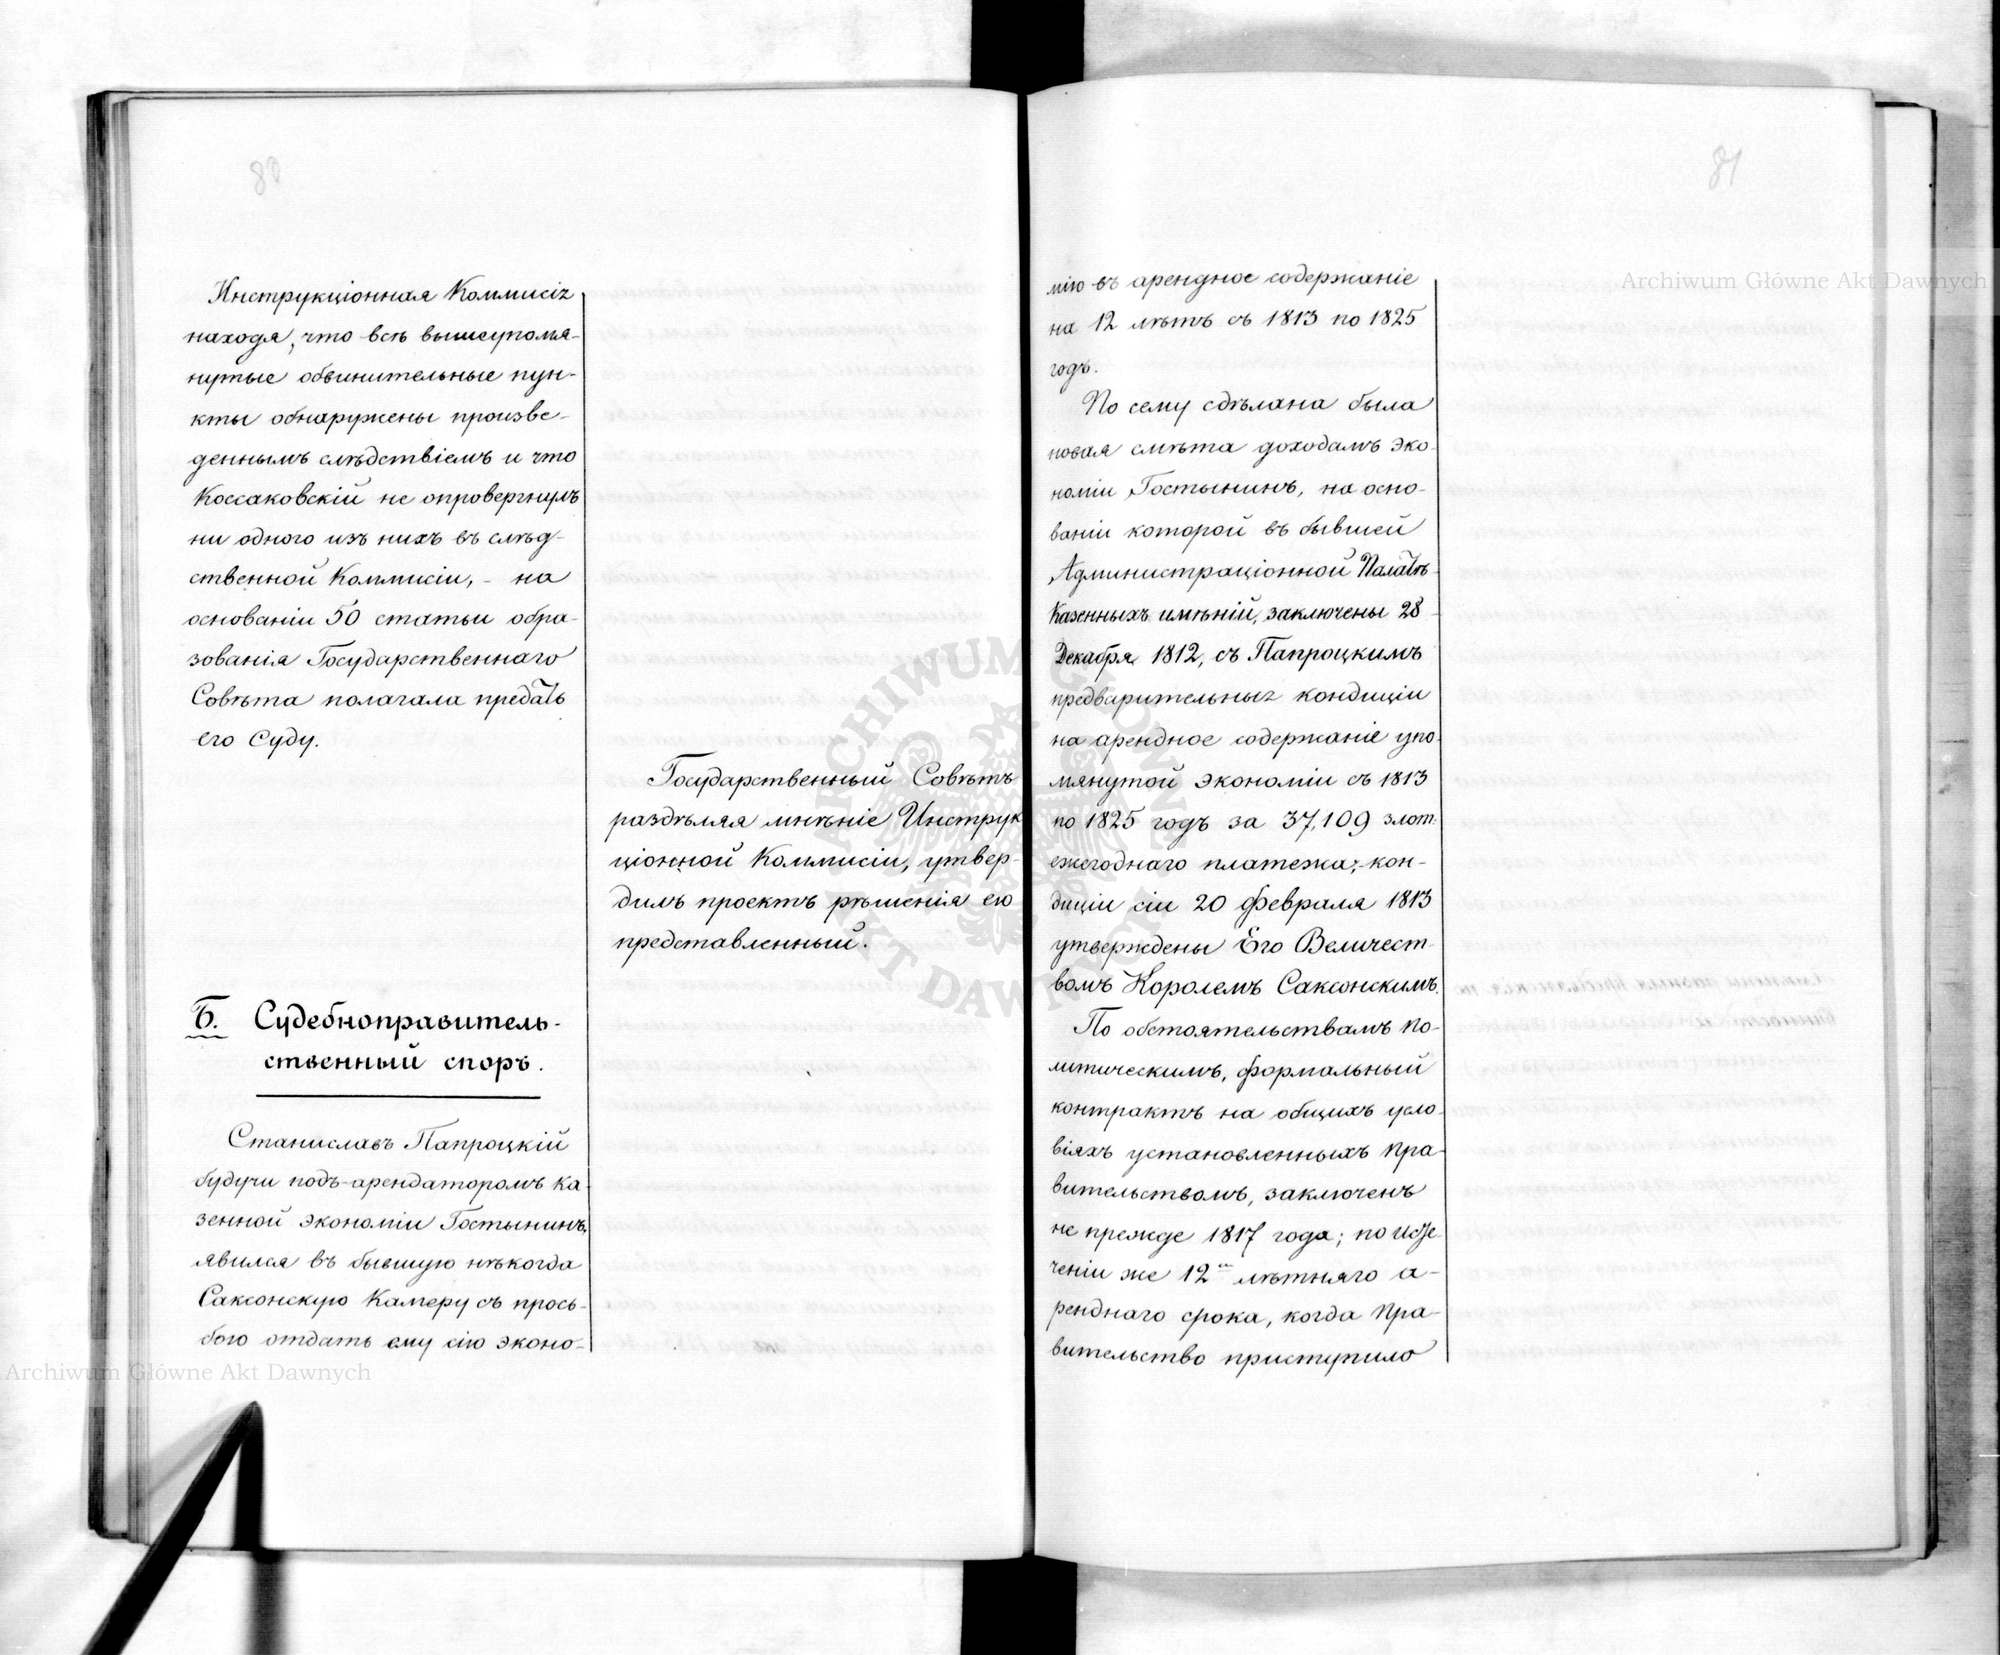 80
Инструкціонная Коммисія
находя, что всѣ вышеупомя-
нутые обвинительные пун-
кты обнаружены произве-
деннымъ слѣдствіемъ и что
Коссаковскій не опровергнулъ
ни одного изъ нихъ въ слѣд-
ственной Коммисіи, - на
основаніи 50 статьи обра-
зованія Государственнаго
Совѣта полагала предать
его Суду.
Государственный Совѣтъ
раздѣляя мнѣніе Инструк
ціонной Коммисіи, утвер-
дилъ проектъ рѣшенія ею
представленный.
Б. Судебноправитель-
ственный споръ.
Станиславъ Папроцкій
будучи подъ-арендаторомъ ка-
зенной экономіи Гостынинъ,
явился въ бывшую нѣкогда
Саксонскую Камеру съ прось-
бою отдать ему сію эконо-
81
мію въ арендное содержаніе
на 12 лѣтъ съ 1813 по 1825
годъ.
По сему сдѣлана была
новая смѣта доходамъ эко-
номіи Гостынинъ, на осно-
ваніи которой въ бывшей
Администраціонной Палатѣ
Казенныхъ имѣній, заключены 28
Декабря 1812, съ Папроцкимъ
предварительныя кондиціи
на арендное содержаніе упо-
мянутой экономіи съ 1813
по 1825 годъ за 37,109 злот:
ежегоднаго платежа; - кон-
диціи сіи 20 Февраля 1813
утверждены Его Величест-
вомъ Королемъ Саксонскимъ.
По обстоятельствамъ по-
литическимъ, формальный
контрактъ на общихъ усло-
віяхъ установленныхъ Пра-
вительствомъ, заключенъ
не прежде 1817 года; по исте-
ченіи же 12 лѣтняго а-
ренднаго срока, когда Пра-
вительство приступило
Archiwum Główne Akt Dawnych
Archiwum Główne Akt Dawnych
ARCHIWUM GŁÓWNE AKT DAWNYCH